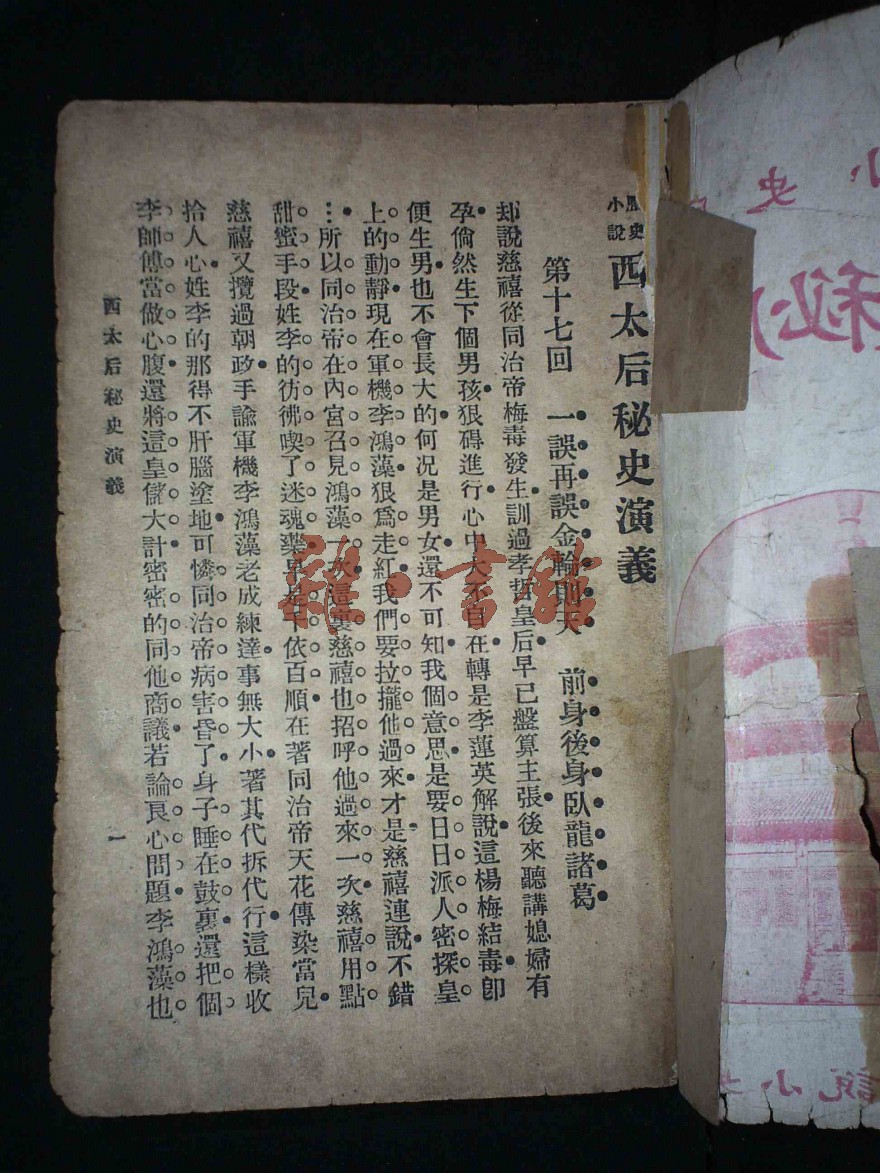 歷史小說 西太后秘史演義
第十七回 一誤再誤金輪則天 前身後身臥龍諸葛
却說慈禧從同治帝梅毒發生訓過孝哲皇后早已盤算主張後來聽講媳婦有
孕倘然生下個男孩狠碍進行心中大不自在轉是李蓮英解說這楊梅結毒卽
便生男也不會長大的何況是男女還不可知我個意思是要日日派人密探皇
上的動靜現在軍機李鴻藻狠爲走紅我們要拉攏他過來才是慈禧連說不錯
…所以同治帝在內宮召見鴻藻一次這裏慈禧也招呼他過來一次慈禧用點
甜蜜手段姓李的彷彿喫了迷魂藥早是千依百順在著同治帝天花傳染當兒
慈禧又攬過朝政手諭軍機李鴻藻老成練達事無大小著其代拆代行這樣收
拾人心姓李的那得不肝腦塗地可憐同治帝病害昏了身子睡在鼓裏還把個
李師傅當做心腹還將這皇儲大計密密的同他商議若論良心問題李鴻藻也
西太后秘史演義 一
雜·書館
小史
秘
說小